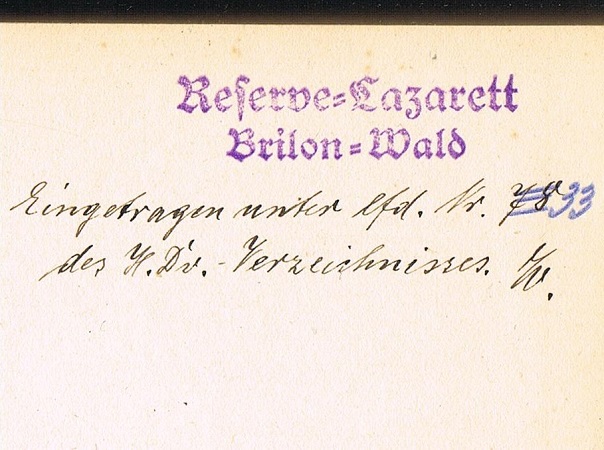 Reserve-Lazarett
Brilon-Wald
Eingetragen unter lfd. Nr. 33
des H.Dv.-Verzeichnisses.